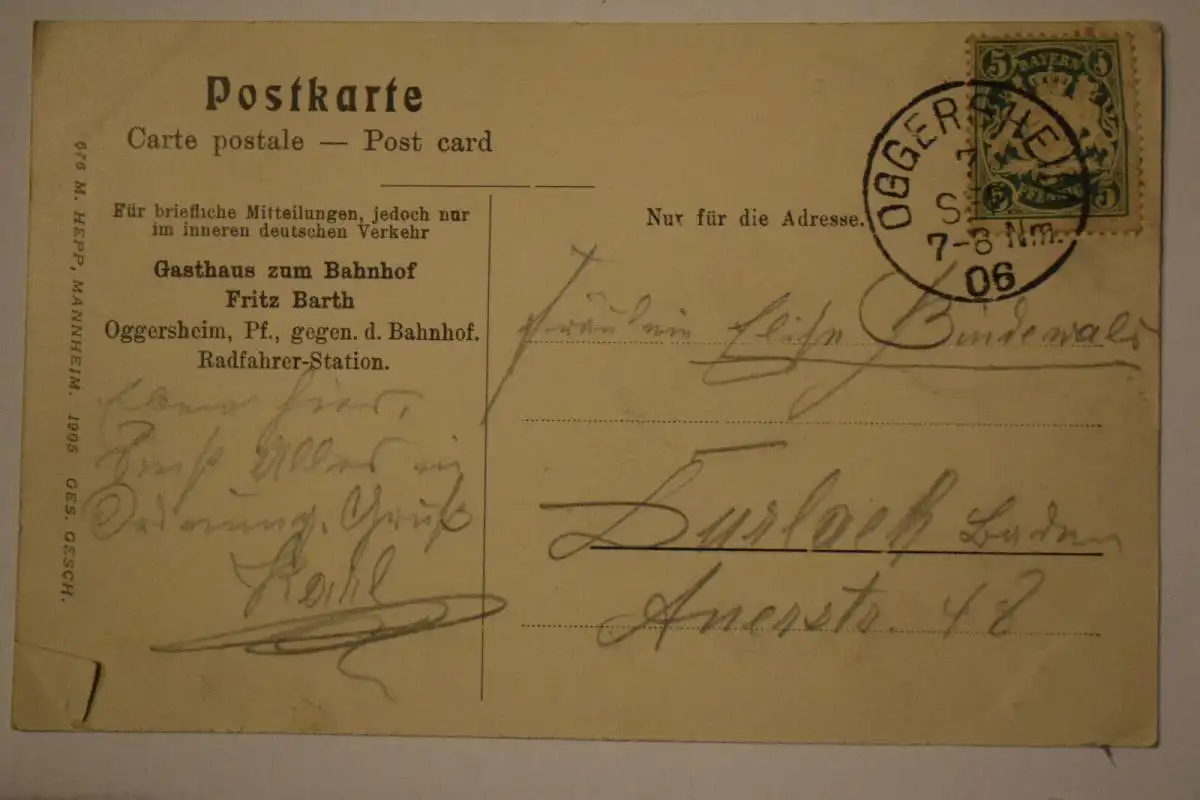 Postkarte
Carte postale — Post card
Für briefliche Mitteilungen, jedoch nur
im inneren deutschen Verkehr
Gasthaus zum Bahnhof
Fritz Barth
Oggersheim, Pf., gegen. d. Bahnhof.
Radfahrer-Station.
hier,
Alles in
Ordnung. Gruß
Karl
676 M. HEPP, MANNHEIM. 1905 GES. GESCH.
5 BAYERN 5
5 PFENNIG 5
OGGERSHEIM
7-8 Nm.
06
Nur für die Adresse.
Fräulein Elise Bindewald
Durlach Baden
Auerstr. 48